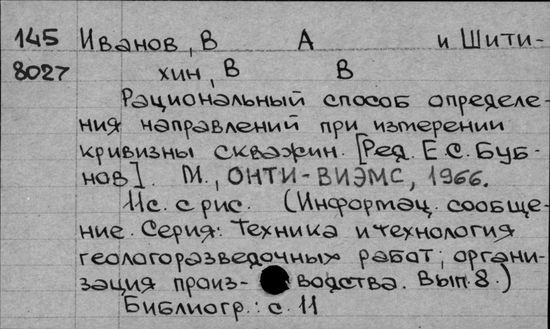 145 Иванов, В А и Шити-
8027 хин, В В
Рациональный способ определе-
ния направлений при измерении
кривизны скважин. [Ред. Е.С. Буб-
нов]. М., ОНТИ-ВИЭМС, 1966.
11с. с рис. (Информац. сообще-
ние. Серия: Техника и технология
геологоразведочных работ; органи-
зация произ- водства. Вып. 8.)
Библиогр.: с. 11